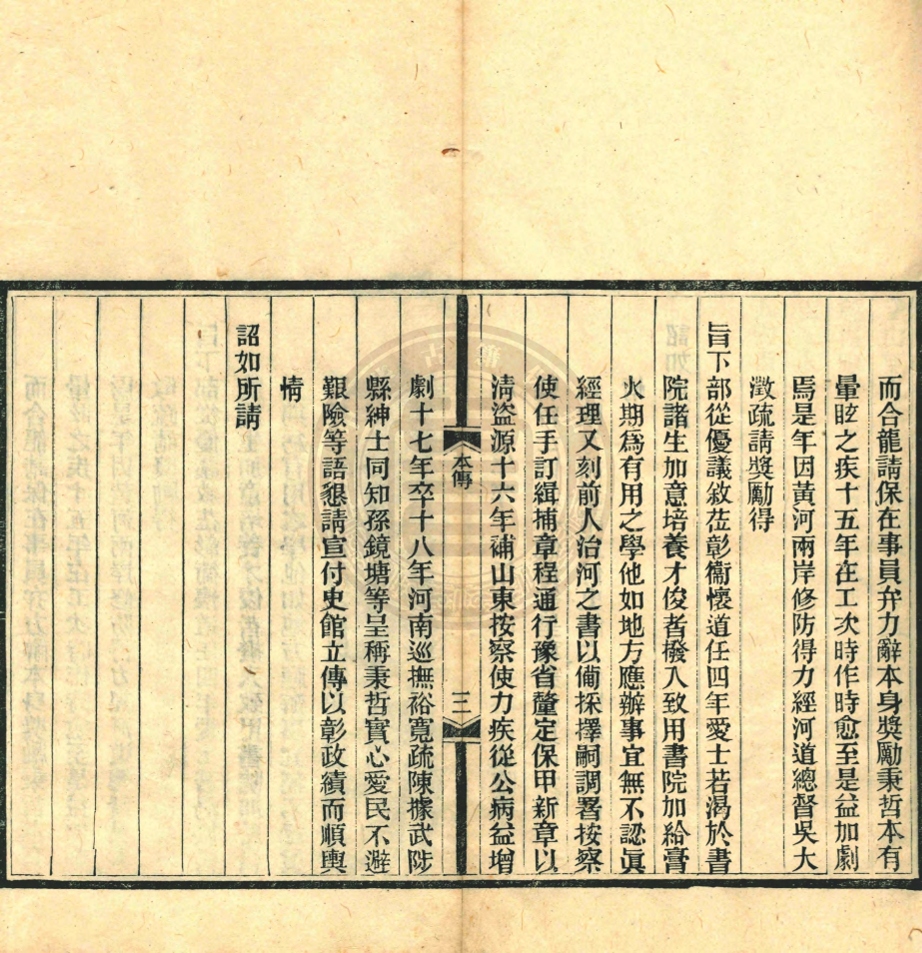 而合龍請保在事員弁力辭本身獎勵秉哲本有
暈眩之疾十五年在工次時作時愈至是益加劇
焉是年因黃河兩岸修防得力經河道總督吳大
澂疏請獎勵得
旨下部從優議敘莅彰衞懷道任四年愛士若渴於書
院諸生加意培養才俊者撥入致用書院加給膏
火期爲有用之學他如地方應辦事宜無不認眞
經理又刻前人治河之書以備採擇嗣調署按察
使任手訂緝捕章程通行豫省釐定保甲新章以
淸盜源十六年補山東按察使力疾從公病益增
本傳
三
劇十七年卒十八年河南巡撫裕寬疏陳據武陟
縣紳士同知孫鏡塘等呈稱秉哲實心愛民不避
艱險等語懇請宣付史館立傳以彰政績而順輿
情
詔如所請